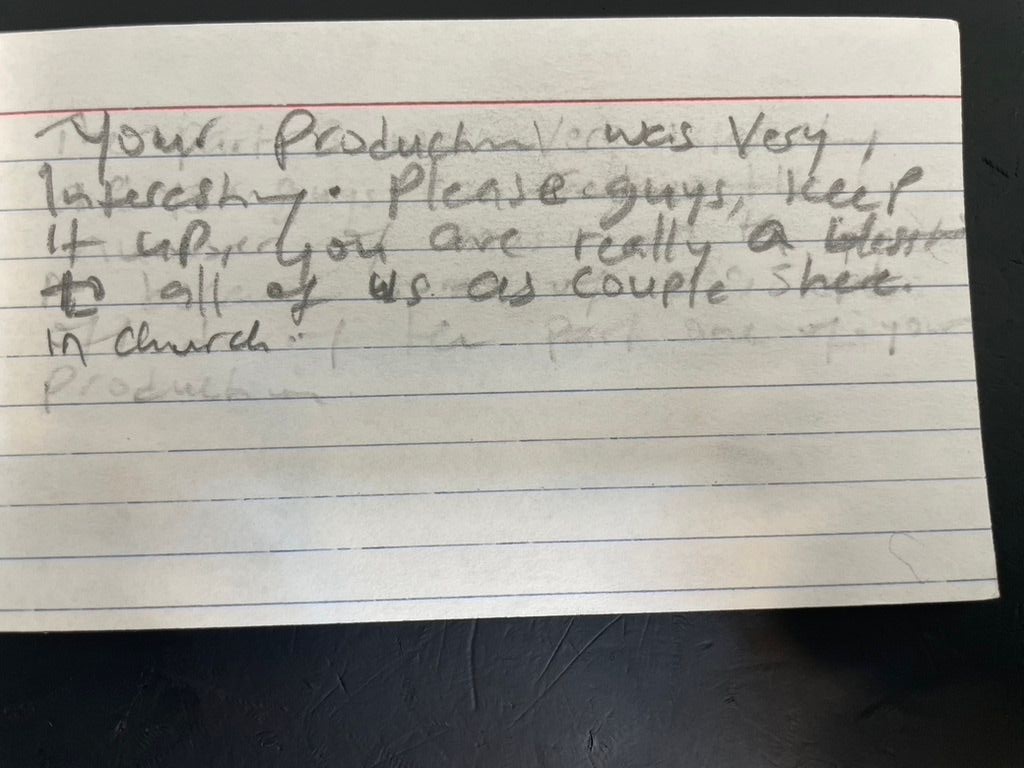 Your Production was Very,
Interesting. Please guys, keep
it up, you are really a
to all of us as couple
in church.
Production